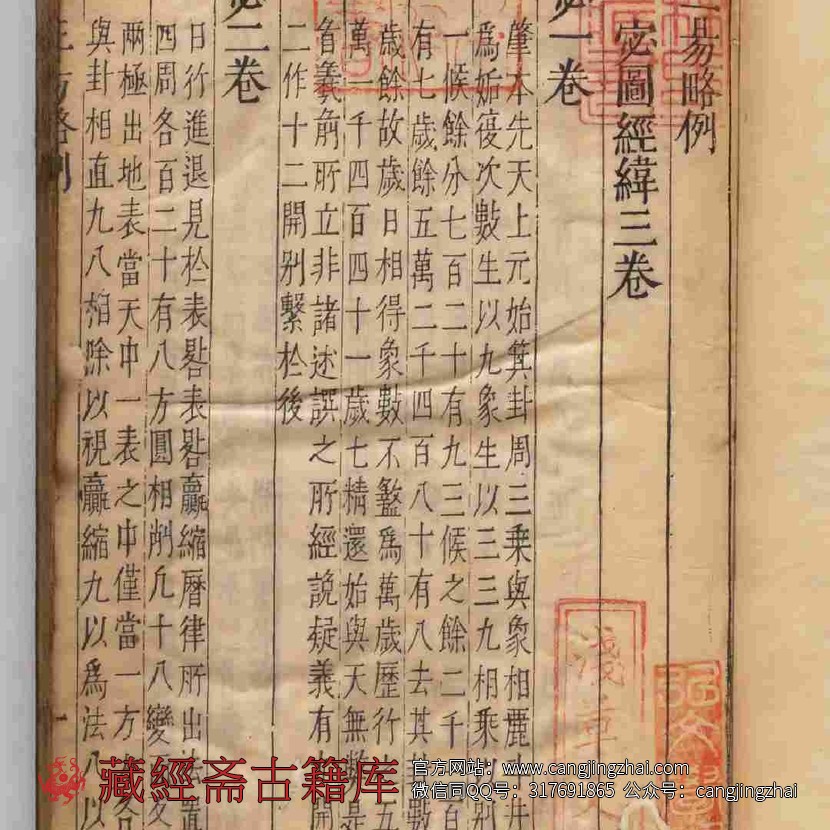 易略例
宓圖經緯三卷
一卷
肇本先天上元始箕卦周三乗與象相麗
爲姤復次數生以九象生以三三九相乗
一候餘分七百二十有九三候之餘二千
有七歲餘五萬二千四百八十有八去其
歲餘故歲日相得象數不盭爲萬歲歷行
萬一千四百四十一歲七精還始與天無
眚羲前所立非諸述譔之所經說疑義有
二作十二開別繫於後
二卷
日行進退見於表晷表晷贏縮曆律所出
四周各百二十有八方圓相削凡十八變
兩極出地表當天中一表之中僅當一方
與卦相直九八相除以視贏縮九以爲法八以
藏經斋古籍库
官方网站：www.cangjingzhai.com
微信同QQ号：317691865 公众号：cangjingzhai